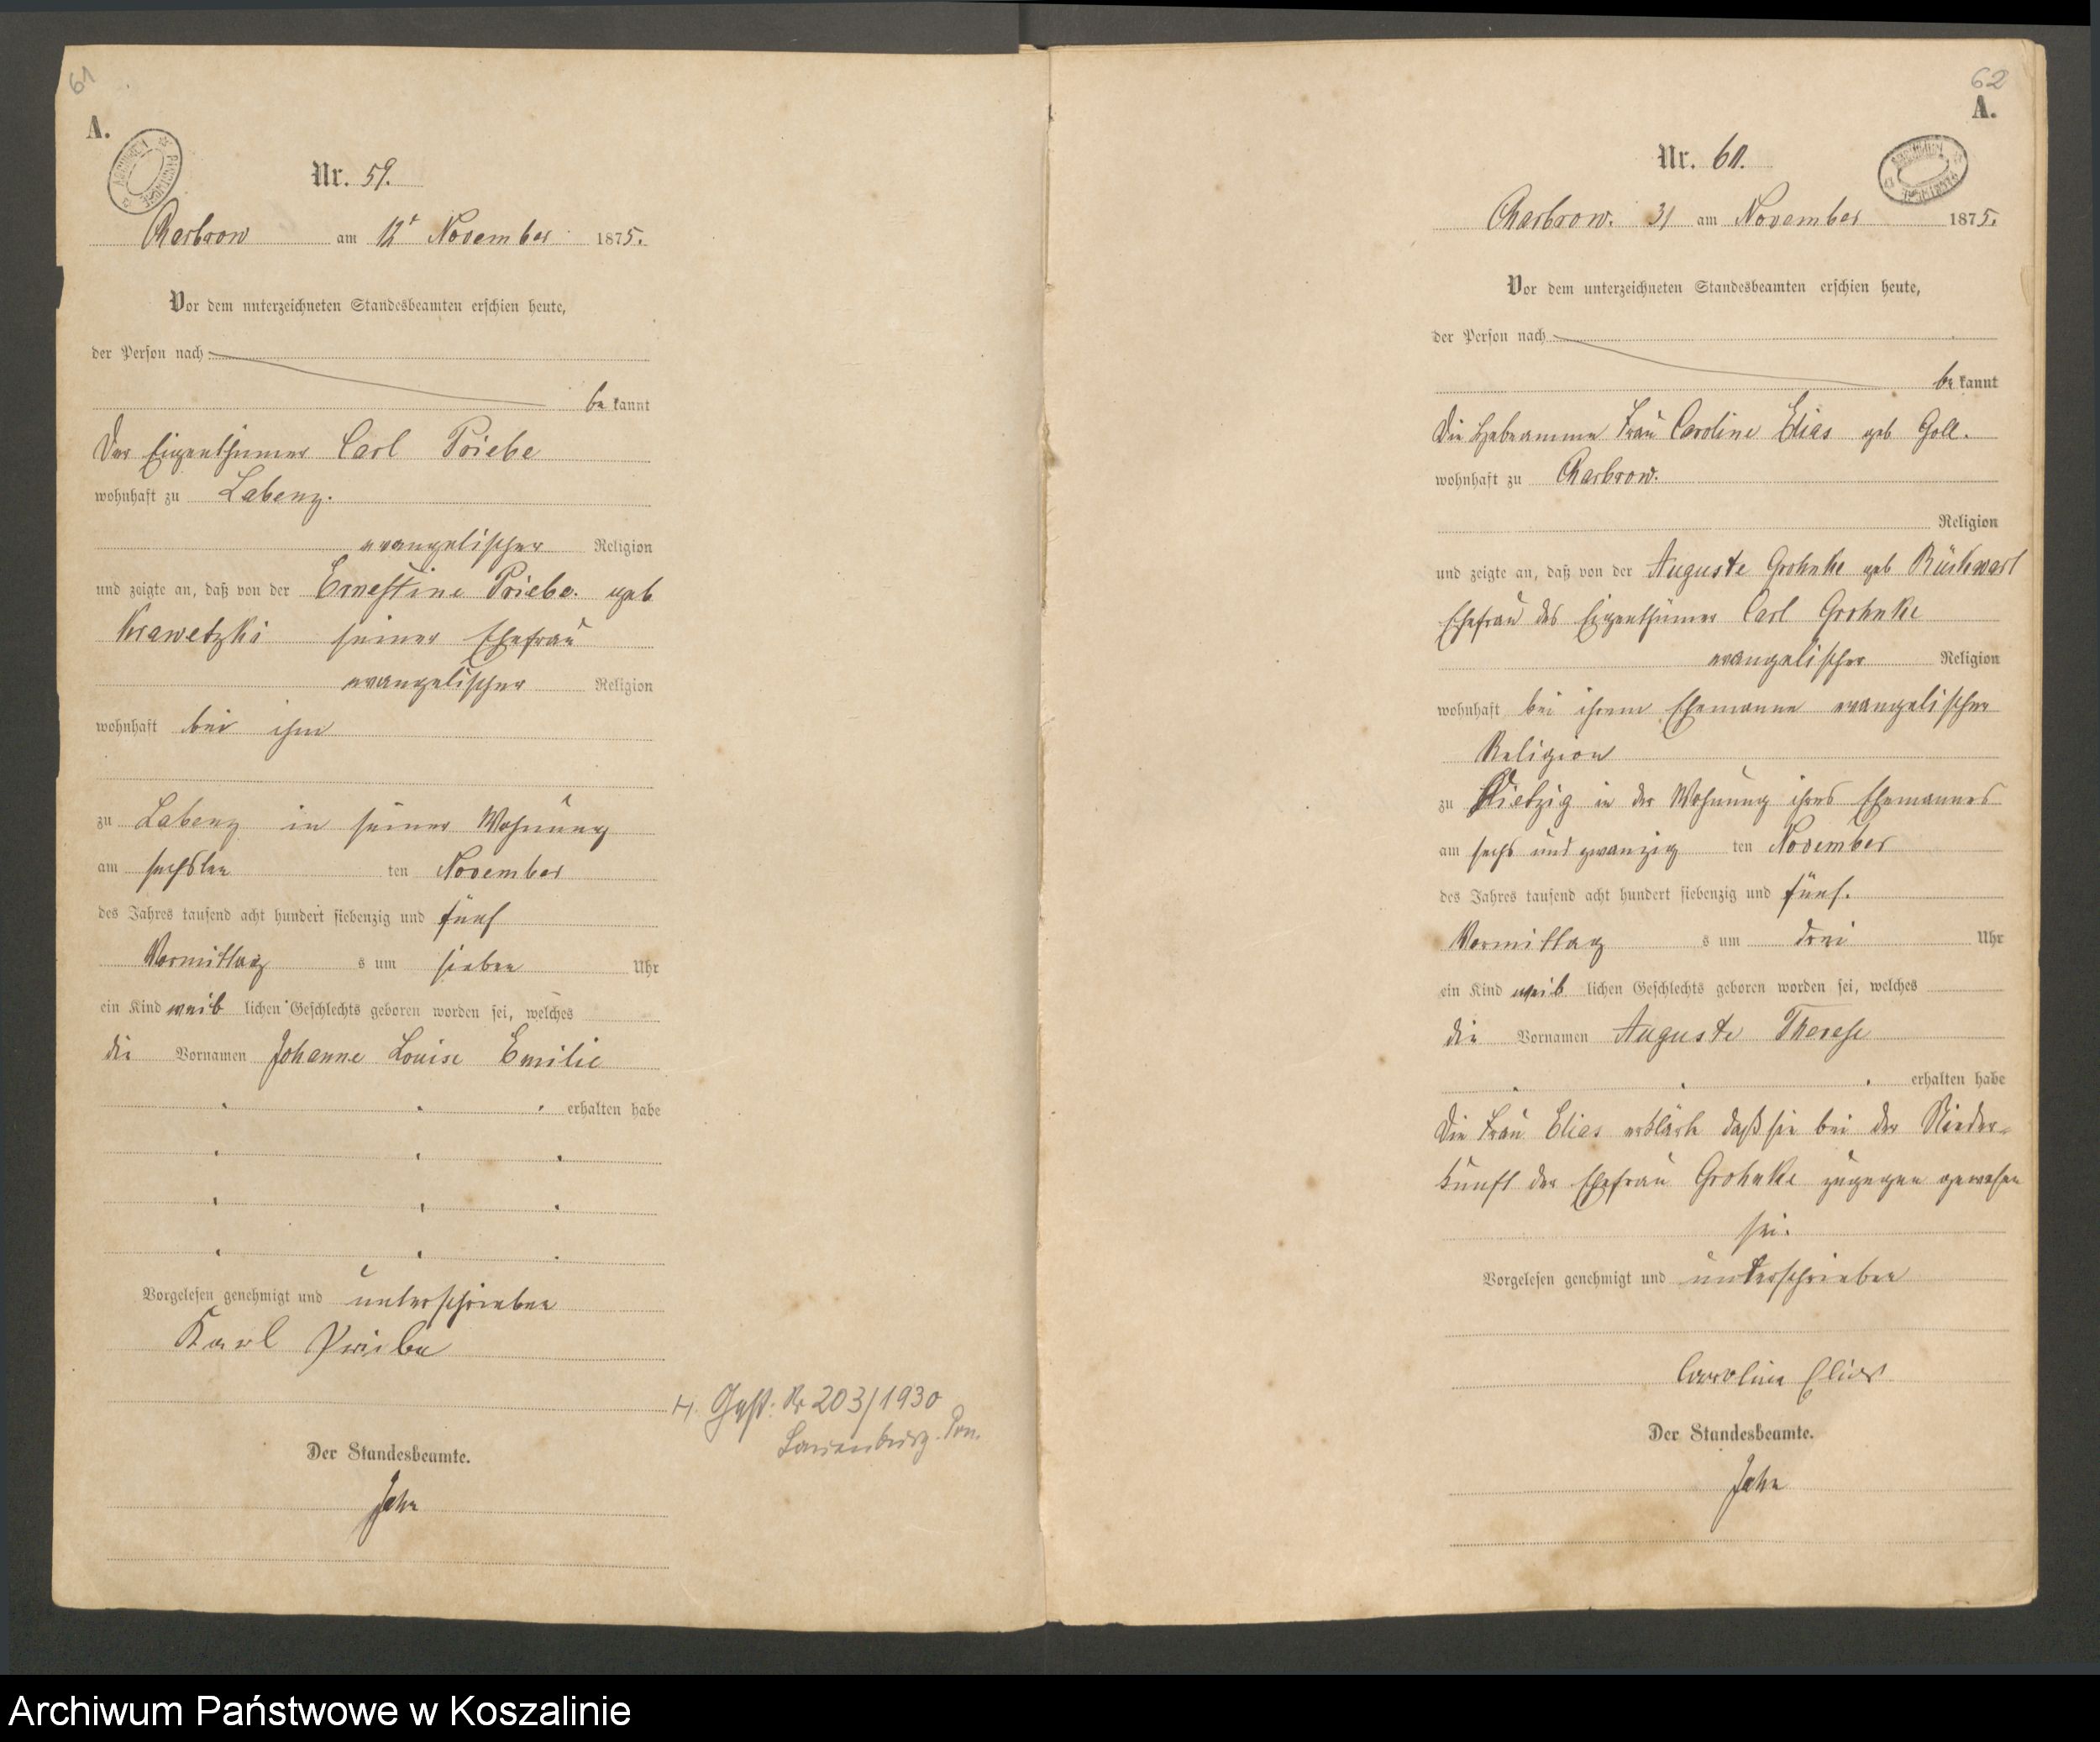 61
A.
Nr. 59.
Charbrow am 12t November 1875.
Vor dem unterzeichneten Standesbeamten erschien heute,
der Person nach
be kannt
Der Eigenthümer Carl Priebe
wohnhaft zu Labenz.
evangelischer Religion
und zeigte an, daß von der Ernestine Priebe. geb
Krawetzki seiner Ehefrau
evangelischer Religion
wohnhaft bei ihm
zu Labenz in seiner Wohnung
am sechsten ten November
des Jahres tausend acht hundert siebenzig und fünf
Vormittag s um sieben Uhr
ein Kind weib lichen Geschlechts geboren worden sei, welches
die Vornamen Johanne Louise Emilie
erhalten habe
Vorgelesen genehmigt und unterschrieben
Karl Priebe
H. Gest: Nr 203/1930
Lauenburg. Pom.
Der Standesbeamte.
Jahn
62
A.
Nr. 60.
Charbrow. 31 am November 1875.
Vor dem unterzeichneten Standesbeamten erschien heute,
der Person nach
be kannt
Die Hebeamme Frau Caroline Elias geb Goll.
wohnhaft zu Charbrow.
Religion
und zeigte an, daß von der Auguste Grohnke geb Rückwart
Ehefrau des Eigenthümer Carl Grohnke
evangelischer Religion
wohnhaft bei ihrem Ehemanne evangelischer
Religion
zu in der Wohnung ihres Ehemannes
am sechs und zwanzig ten November
des Jahres tausend acht hundert siebenzig und fünf.
Vormittag s um drei Uhr
ein Kind weib lichen Geschlechts geboren worden sei, welches
die Vornamen Auguste Therese
erhalten habe
Die Frau Elias erklärte daß sie bei der Nieder-
kunft der Ehefrau Grohnke zugegen gewesen
sei.
Vorgelesen genehmigt und unterschrieben
Carolina Elias
Der Standesbeamte.
Jahn
Archiwum Państwowe w Koszalinie